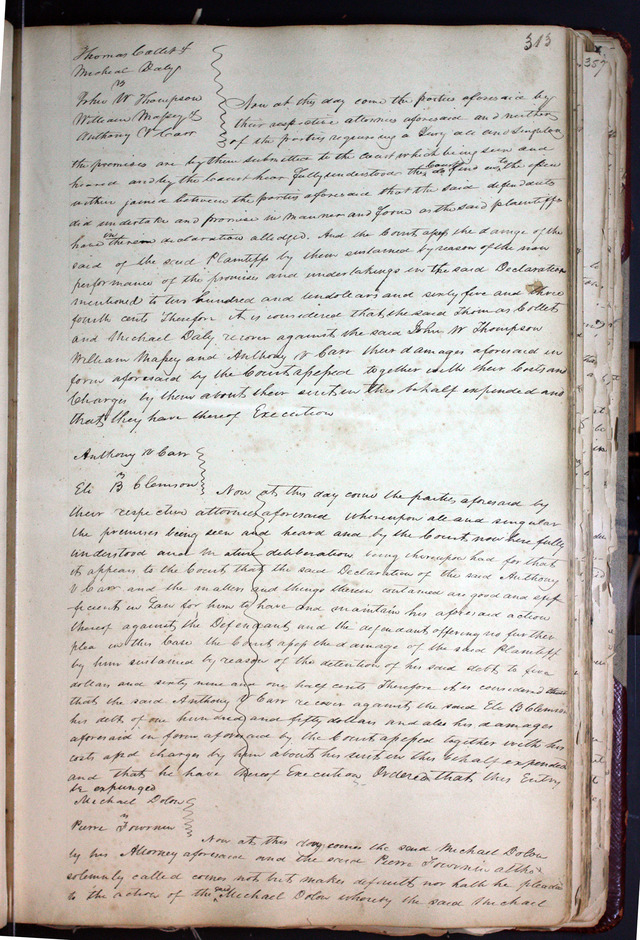 313
Thomas Collet &
Micheal Daly
vs
John W Thompson
William Massey &
Anthony V Carr
Now at this day come the parties aforesaid by
their respective attornies aforesaid and neither
of the parties requiring a Jury all and Singular
the promises are by them submitted to the Court which being seen and
heard and by the Court hear fully understood the Court do find in the
within joined between the parties aforesaid that the said defendants
did undertake and promise in Manner and form as the said plaintiffs
have in thereon declaration alledged. And the Court assess the damage of the
said of the said Plaintiffs by them sustained by reason of the non
performance of the promises and undertakings in the said Declaration
mentioned to two hundred and ten dollars and sixty five and three
fourth cents Therefore it is considered that the said Thomas Collet
and Michael Daly recover against the said John W Thompson
William Massey and Anthony V Carr their damages aforesaid in
form aforesaid by the Court assessed together with their Costs and
Charges by them about their suit in this behalf expended and
that they have thereof Execution
Anthony V Carr
vs
Eli B Clemson
Now at this day come the parties aforesaid by
their respective attornies aforesaid whereupon all and singular
the premises being seen and heard and by the Court now here fully
understood and mature deliberation being thereupon had for that
it appears to the Court that the said Declaration of the said Anthony
V Carr and the matters and things therein contained are good and suf
ficient in Law for him to have and maintain his aforesaid action
thereof against the Defendant and the defendant offering no further
plea in this Case the Court assess the damage of the said Plaintiff
by him sustained by reason of the detention of his said debt to five
dollars and sixty nine and one half cents Therefore it is considered
that the said Anthony V Carr recover against the said Eli B Clemson
his debt of one hundred and fifty dollars and also his damages
aforesaid in form aforesaid by the Court assessed together with his
costs and charges by him about his suit in this behalf expended
and that he have thereof Execution Ordered that this Entry
be expunged
Michael Dolow
vs
Pierre Fournier
Now at this day comes the said Michael Dolow
by his Attorney aforesaid and the said Pierre Fournier altho
solemnly called comes not but makes default nor hath he pleaded
to the action of the said Michael Dolow whereby the said Michael
357